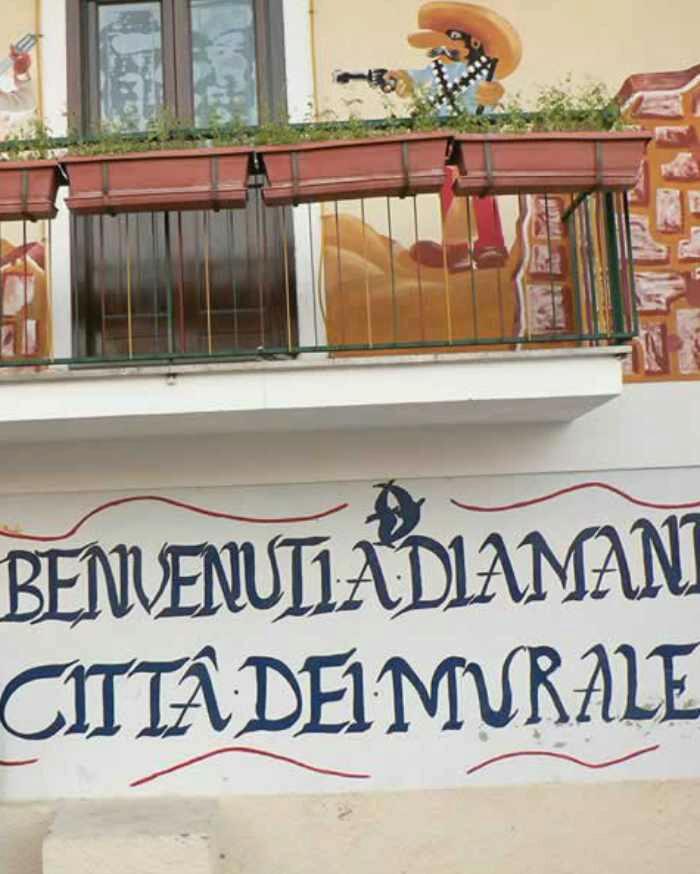 BENVENUTI·A·DIAMANT
CITTÂ·DEI·MURALE